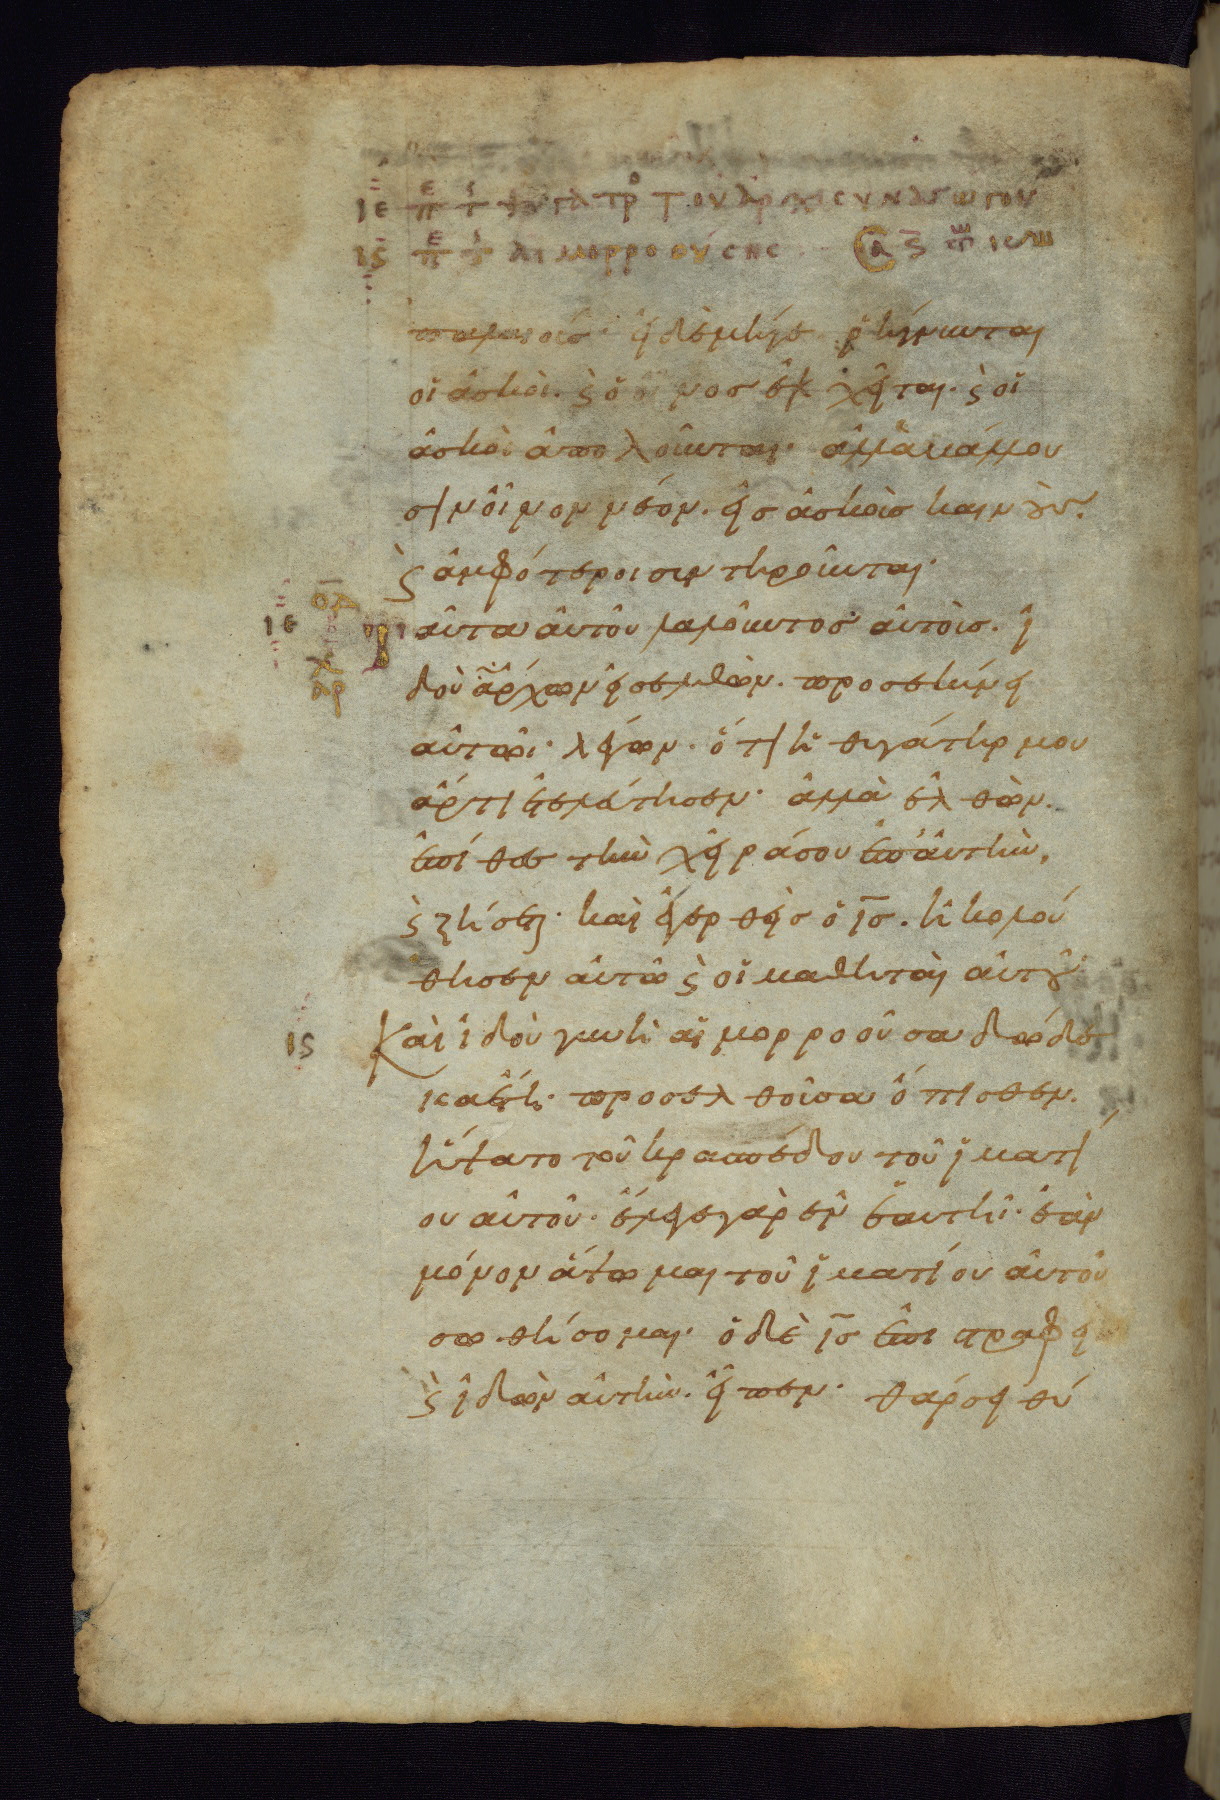 ιε πε τς θυγατρο του αρχισυναγωγου
ις πε τς αιμορροουσης σα ς
παλαιούς· εἰ δὲ μήγε ῥήγνυνται
οἱ ἀσκοὶ· ϛ ὁ οἶνος ἐκχεῖται· ϛ οἱ
ἀσκοὶ ἀπολοῦνται· ἀλλὰ βάλλου
σιν οἶνον νέον· εἰς ἀσκοὺς καινούς·
ϛ ἀμφότεροι συντηροῦνται·
ιε Ταῦτα αὐτοῦ λαλοῦντος αὐτοῖς· ἰ
δοὺ ἄρχων εἰσελθὼν· προσεκύνει
αὐτῶι· λέγων· ὅτι ἡ θυγάτηρ μου
ἄρτι ἐτελεύτησεν· ἀλλὰ ἐλθὼν·
ἐπίθες τὴν χεῖρά σου ἐπ' αὐτὴν,
ϛ ζήσεται· καὶ ἐγερθεὶς ὁ ις· ἠκολού
θησεν αὐτῶ ϛ οἱ μαθηταὶ αὐτοῦ·
ις Καὶ ἰδοὺ γυνὴ αἱμορροοῦσα δώδε
κα ἔτη· προσελθοῦσα ὄπισθεν·
ἥψατο τοῦ κρασπέδου τοῦ ἱματί
ου αὐτοῦ· ἔλεγε γὰρ ἐν ἑαυτῆ· ἐὰν
μόνον ἅψωμαι τοῦ ἱματίου αὐτοῦ
σωθήσομαι· ὁ δὲ ις ἐπιστραφεὶς
ϛ ἰδὼν αὐτὴν· εἶπεν· θάρσει θύ